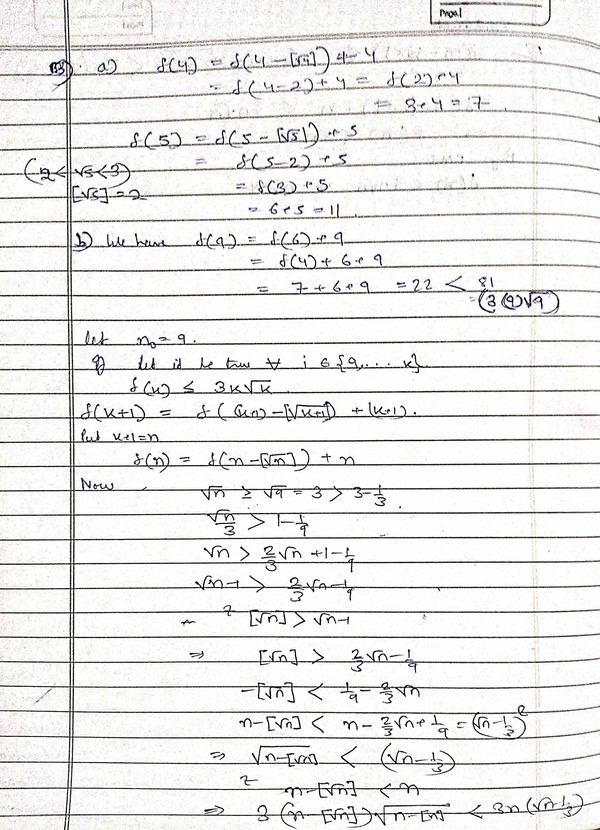 Page
B3) a) f(4) = f(4 - [√4]) + 4
= f(4-2) + 4 = f(2) + 4
= 3 + 4 = 7
f(5) = f(5 - [√5]) + 5
(2 < √5 < 3) = f(5-2) + 5
[√5] = 2 = f(3) + 5
= 6 + 5 = 11
b) We have f(9) = f(6) + 9
= f(4) + 6 + 9
= 7 + 6 + 9 = 22 < 81
= (3 (9) √9)
let n₀ = 9.
let it be true ∀ i ∈ {9, .... k}
f(k) ≤ 3k√k
f(k+1) = f((k+1) - [√k+1]) + (k+1).
Put k+1 = n
f(n) = f(n - [√n]) + n
Now √n ≥ √9 = 3 > 3 - 1/3
√n/3 > 1 - 1/9
√n > 2/3 √n + 1 - 1/9
√n - 1 > 2/3 √n - 1/9
[√n] > √n - 1
⇒ [√n] > 2/3 √n - 1/9
-[√n] < 1/9 - 2/3 √n
n - [√n] < n - 2/3 √n + 1/9 = (√n - 1/3)²
⇒ √n - [√n] < (√n - 1/3)
n - [√n] < n
⇒ 3 (n - [√n]) √n - [√n] < 3n (√n - 1/3)